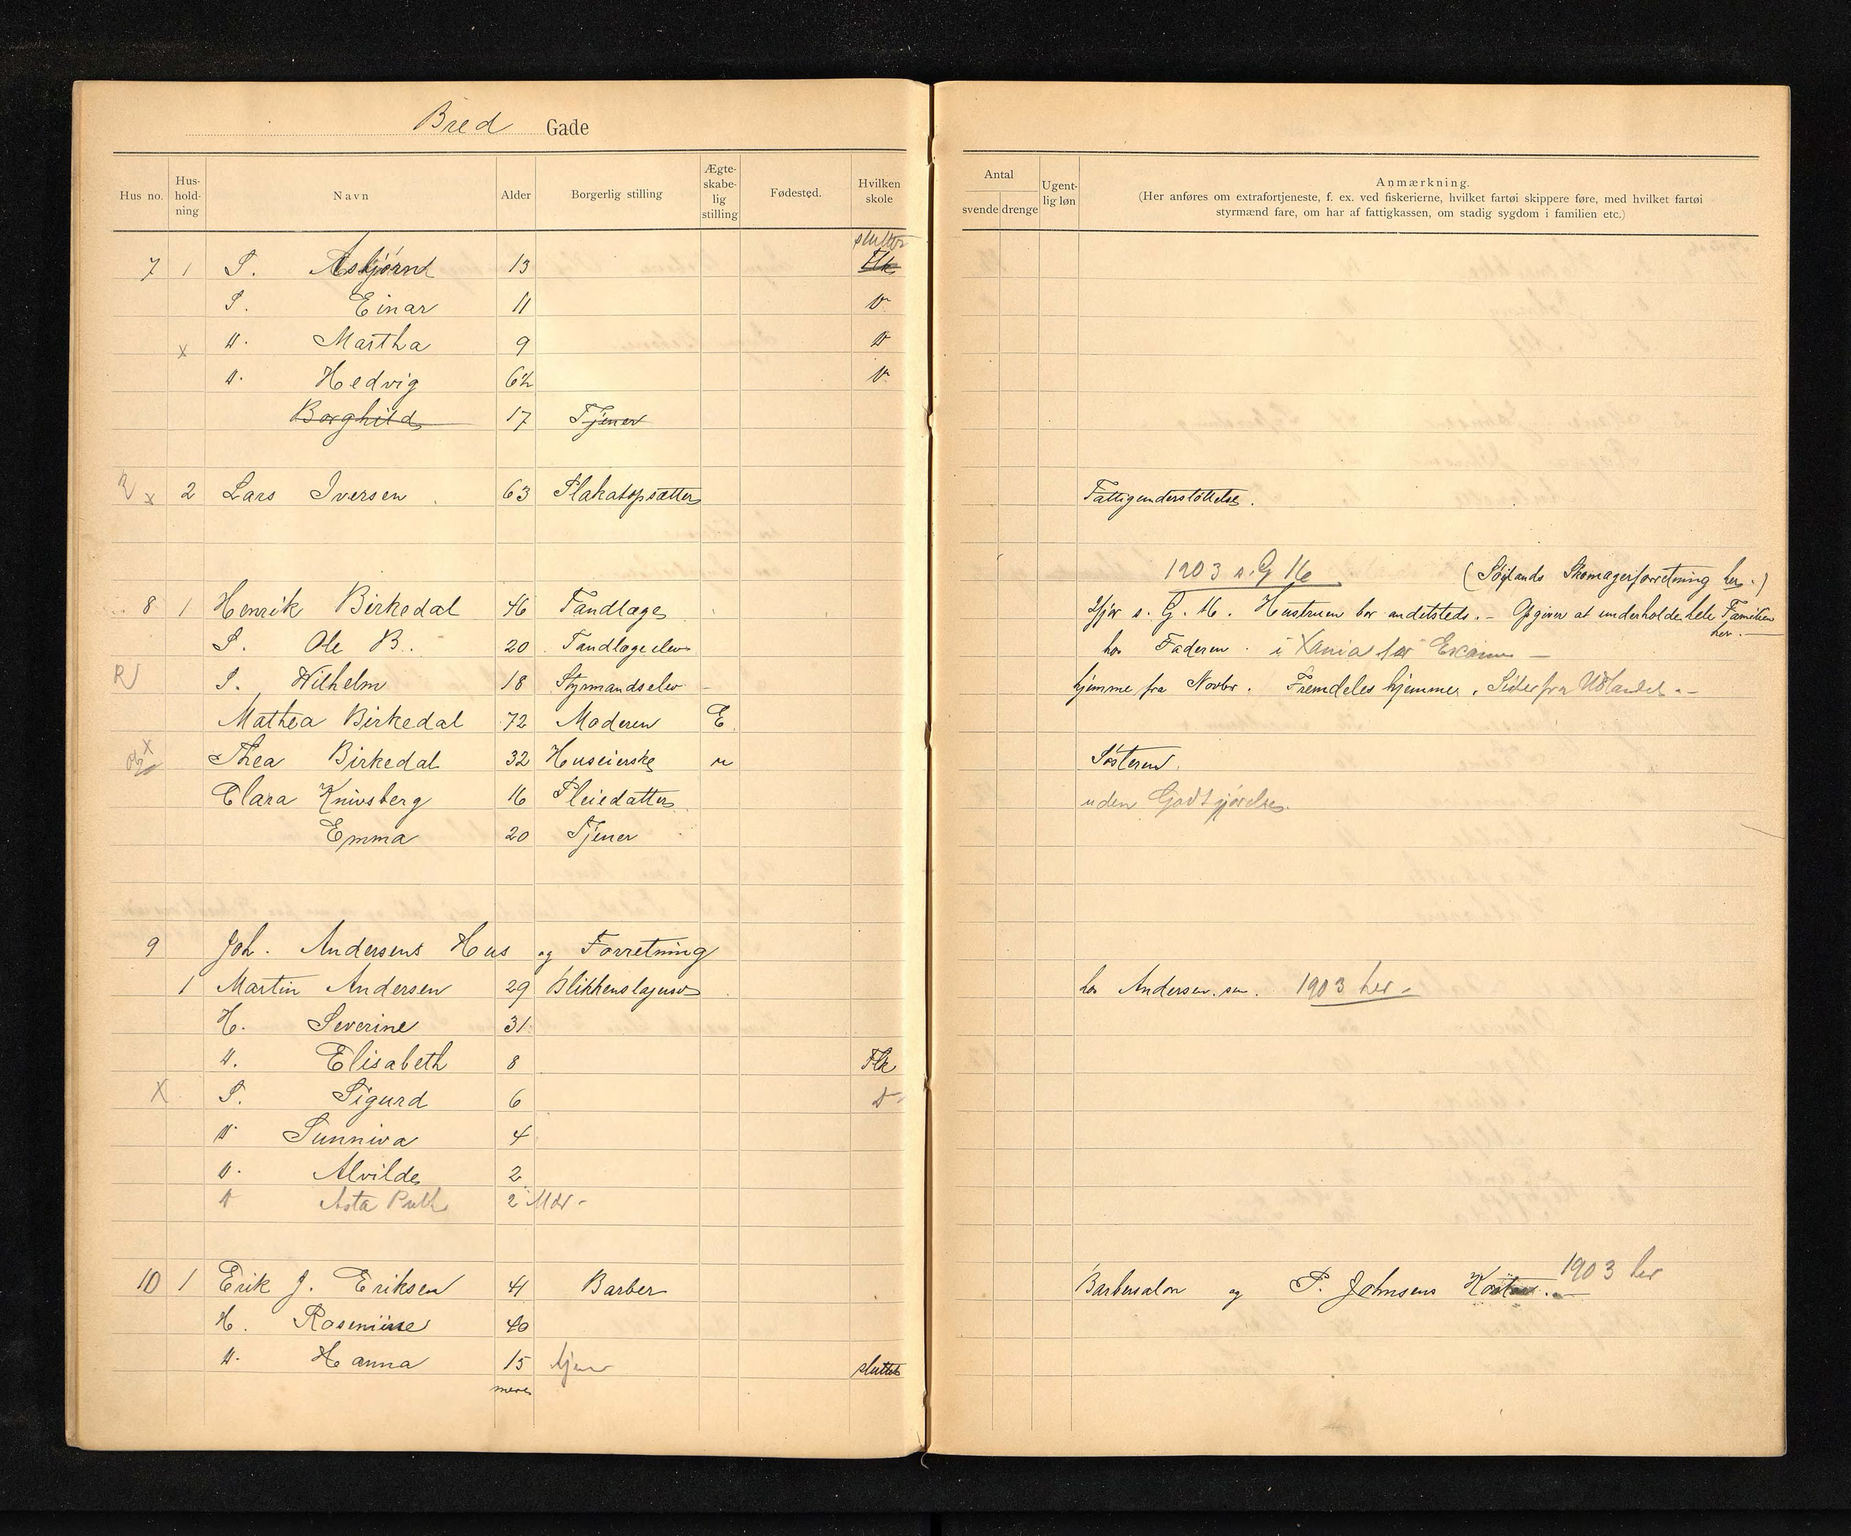 Bred Gade
Hus no. Hus-hold-ning Navn Alder Borgerlig stilling Ægte-skabe-lig stilling Fødested. Hvilken skole Antal svende drenge Ugent-lig løn Anmærkning.
(Her anføres om extrafortjeneste, f. ex. ved fiskerierne, hvilket fartøi skippere føre, med hvilket fartøi
styrmænd fare, om har af fattigkassen, om stadig sygdom i familien etc.)
sluttet
7 1 S. Asbjørn 13 Flk
S. Einar 11 D
x D. Martha 9 D
D. Hedvig 6½ D
Borghild 17 Tjener
x 2 Lars Iversen 63 Plakatopsætter Fattigunderstøttelse.
1903 s. G 16 (Søylands Skomagerforretning her.)
8 1 Henrik Birkedal 46 Tandlæge Ifjor s. G. 16. Hustruen bor andetsteds. - Opgiver at underholde hele Familien
her. -
S. Ole B. 20 Tandlægeelev hos Faderen. i Xania for Examen -
R S. Wilhelm 18 Styrmandselev - hjemme fra Novbr. Fremdeles hjemme. Sider fra Udlandet. -
Mathea Birkedal 72 Moderen E.
x Thea Birkedal 32 Huseierske u Søsteren.
Clara Knivsberg 16 Pleiedatter uden Godtgjørelse.
Emma 20 Tjener
9 Joh. Andersens Hus og Forretning
1 Martin Andersen 29 Blikkenslagersv hos Andersen. sen. 1903 her -
H. Severine 31
D. Elisabeth 8 Flk
X S. Sigurd 6 D
D Sunniva 4
D. Alvilde 2
D Asta Ruth 2 Mdr -
1903 her
10 1 Erik J. Eriksen 41 Barber Barbersalon og P. Johnsens
H. Rosemine 40
D. Hanna 15 tjener sluttet